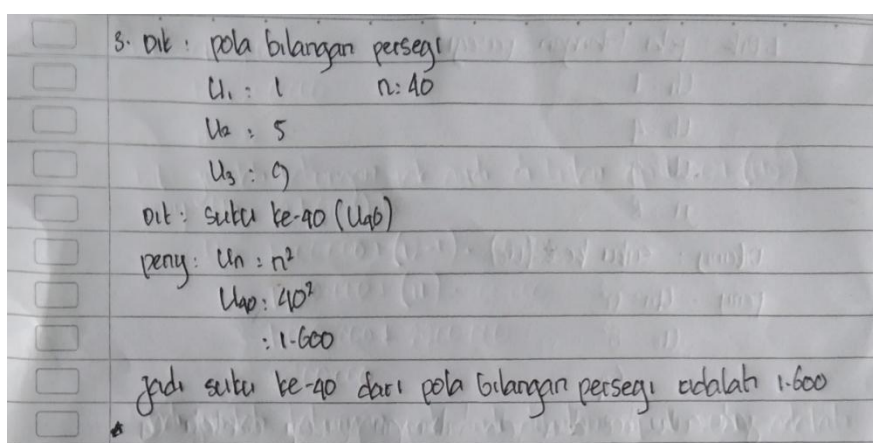 3. Dik : pola bilangan persegi
U₁ : 1 n : 40
U₂ : 5
U₃ : 9
Dit : suku ke-40 (U₄₀)
peny : Un : n²
U₄₀ : 40²
: 1.600
Jadi suku ke-40 dari pola bilangan persegi adalah 1.600